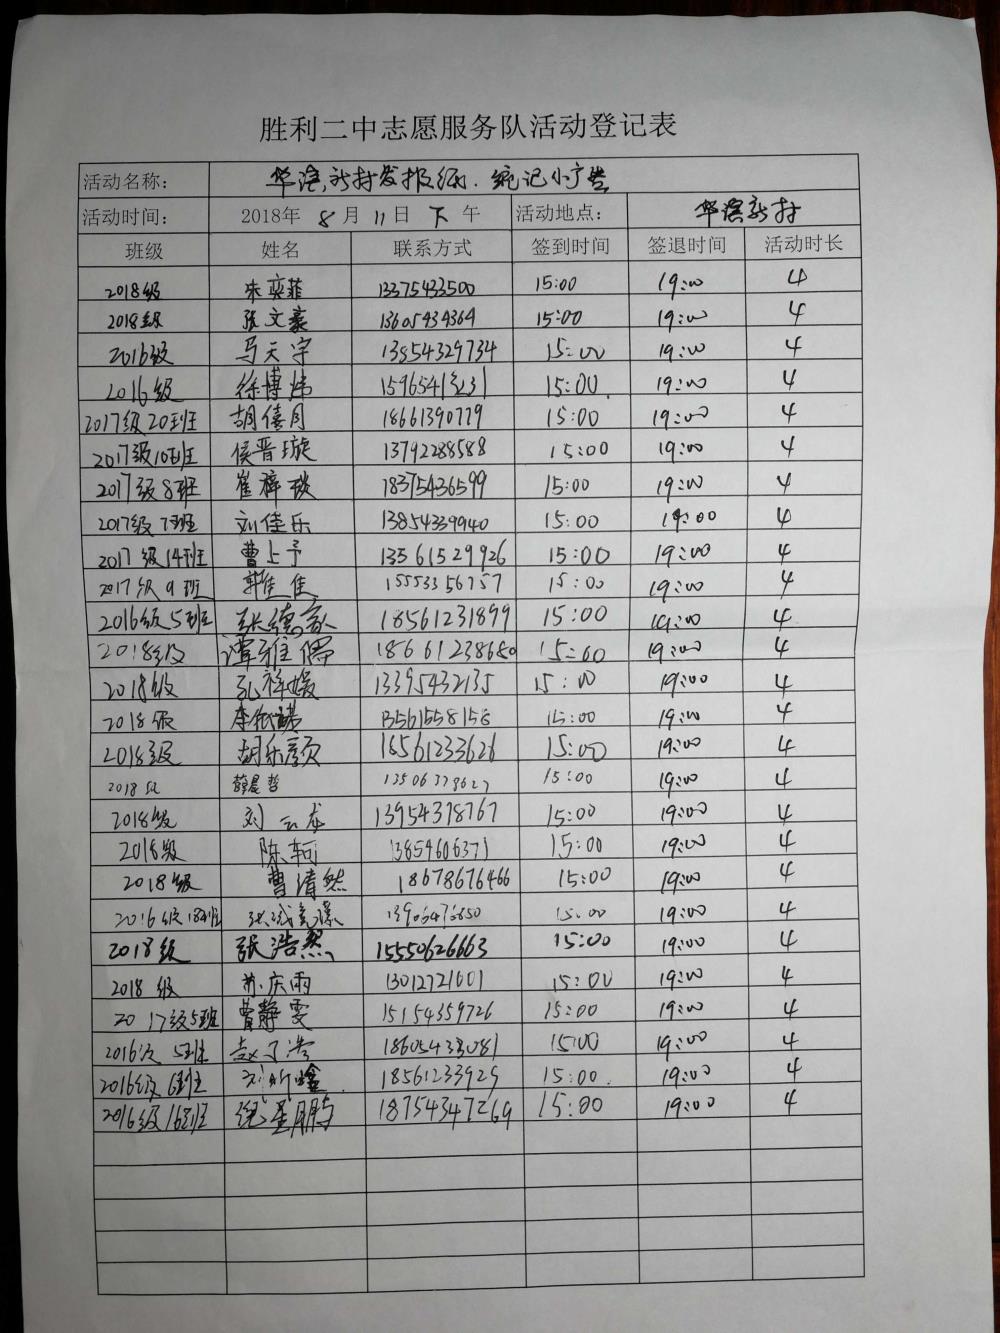 胜利二中志愿服务队活动登记表
活动名称： 华滨新村发报纸、 小广告
活动时间： 2018年 8 月 11 日 下 午 活动地点： 华滨新村
班级 姓名 联系方式 签到时间 签退时间 活动时长
2018级 朱奕菲 13375433500 15:00 19:00 4
2018级 张文豪 13605434364 15:00 19:00 4
2016级 马天宇 13854329734 15:00 19:00 4
2016级 徐博炜 15:00 19:00 4
2017级20班 胡僖月 18661390779 15:00 19:00 4
2017级10班 侯晋璇 13792288588 15:00 19:00 4
2017级8班 崔梓琰 18375436599 15:00 19:00 4
2017级7班 刘佳乐 13854339940 15:00 19:00 4
2017级14班 曹上予 13561529926 15:00 19:00 4
2017级9班 郭佳佳 15553356757 15:00 19:00 4
2016级5班 张德 18561231899 15:00 19:00 4
2018级 谭雅儒 15:00 19:00 4
2018级 孔祥媛 13395432135 15:00 19:00 4
2018级 李依诺 13561558158 15:00 19:00 4
2018级 胡乐颜 18561233626 15:00 19:00 4
2018级 薛晨哲 15:00 19:00 4
2018级 刘云龙 13954378767 15:00 19:00 4
2018级 陈轲 13854606371 15:00 19:00 4
2018级 曹清然 18678676466 15:00 19:00 4
2016级18班 15:00 19:00 4
2018级 张浩然 15550626663 15:00 19:00 4
2018级 苏庆雨 13012721601 15:00 19:00 4
2017级5班 曹静雯 15154359726 15:00 19:00 4
2016级 5班 赵 15:00 19:00 4
2016级6班 刘昕 18561233929 15:00 19:00 4
2016级16班 倪星鹏 18754347269 15:00 19:00 4